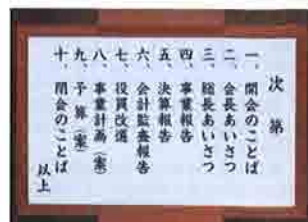 次第
一、開会のことば
二、会長あいさつ
三、総長あいさつ
四、事業報告
五、決算報告
六、会計監査報告
七、役員改選
八、事業計画（案）
九、予算（案）
十、閉会のことば
以上